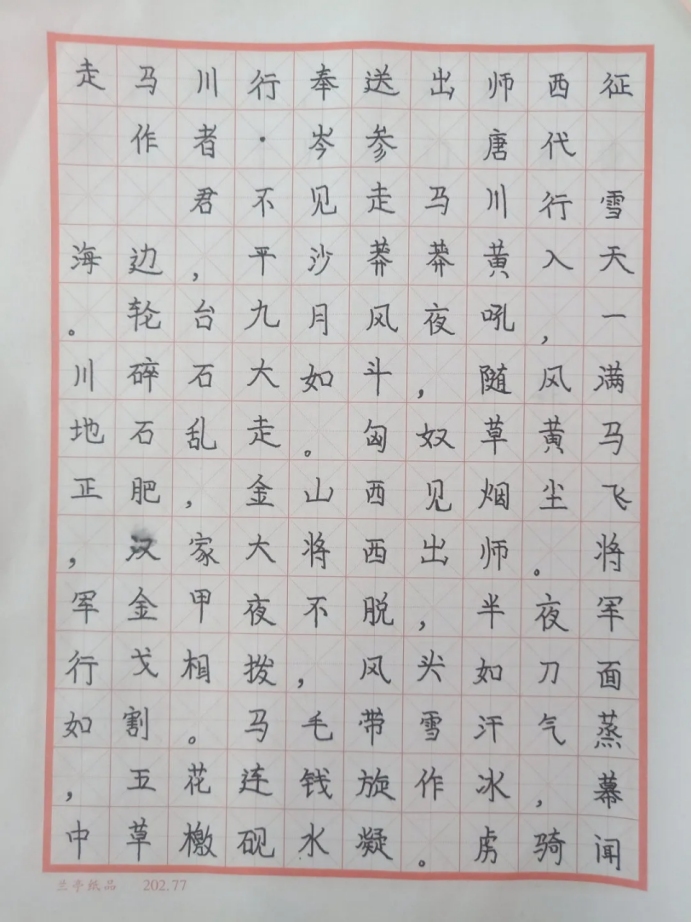 走马川行奉送出师西征
作者·岑参 唐代
君不见走马川行雪
海边，平沙莽莽黄入天
。轮台九月风夜吼，一
川碎石大如斗，随风满
地石乱走。匈奴草黄马
正肥，金山西见烟尘飞
，汉家大将西出师。将
军金甲夜不脱，半夜军
行戈相拨，风头如刀面
如割。马毛带雪汗气蒸
，五花连钱旋作冰，幕
中草檄砚水凝。虏骑闻
兰亭纸品 202.77